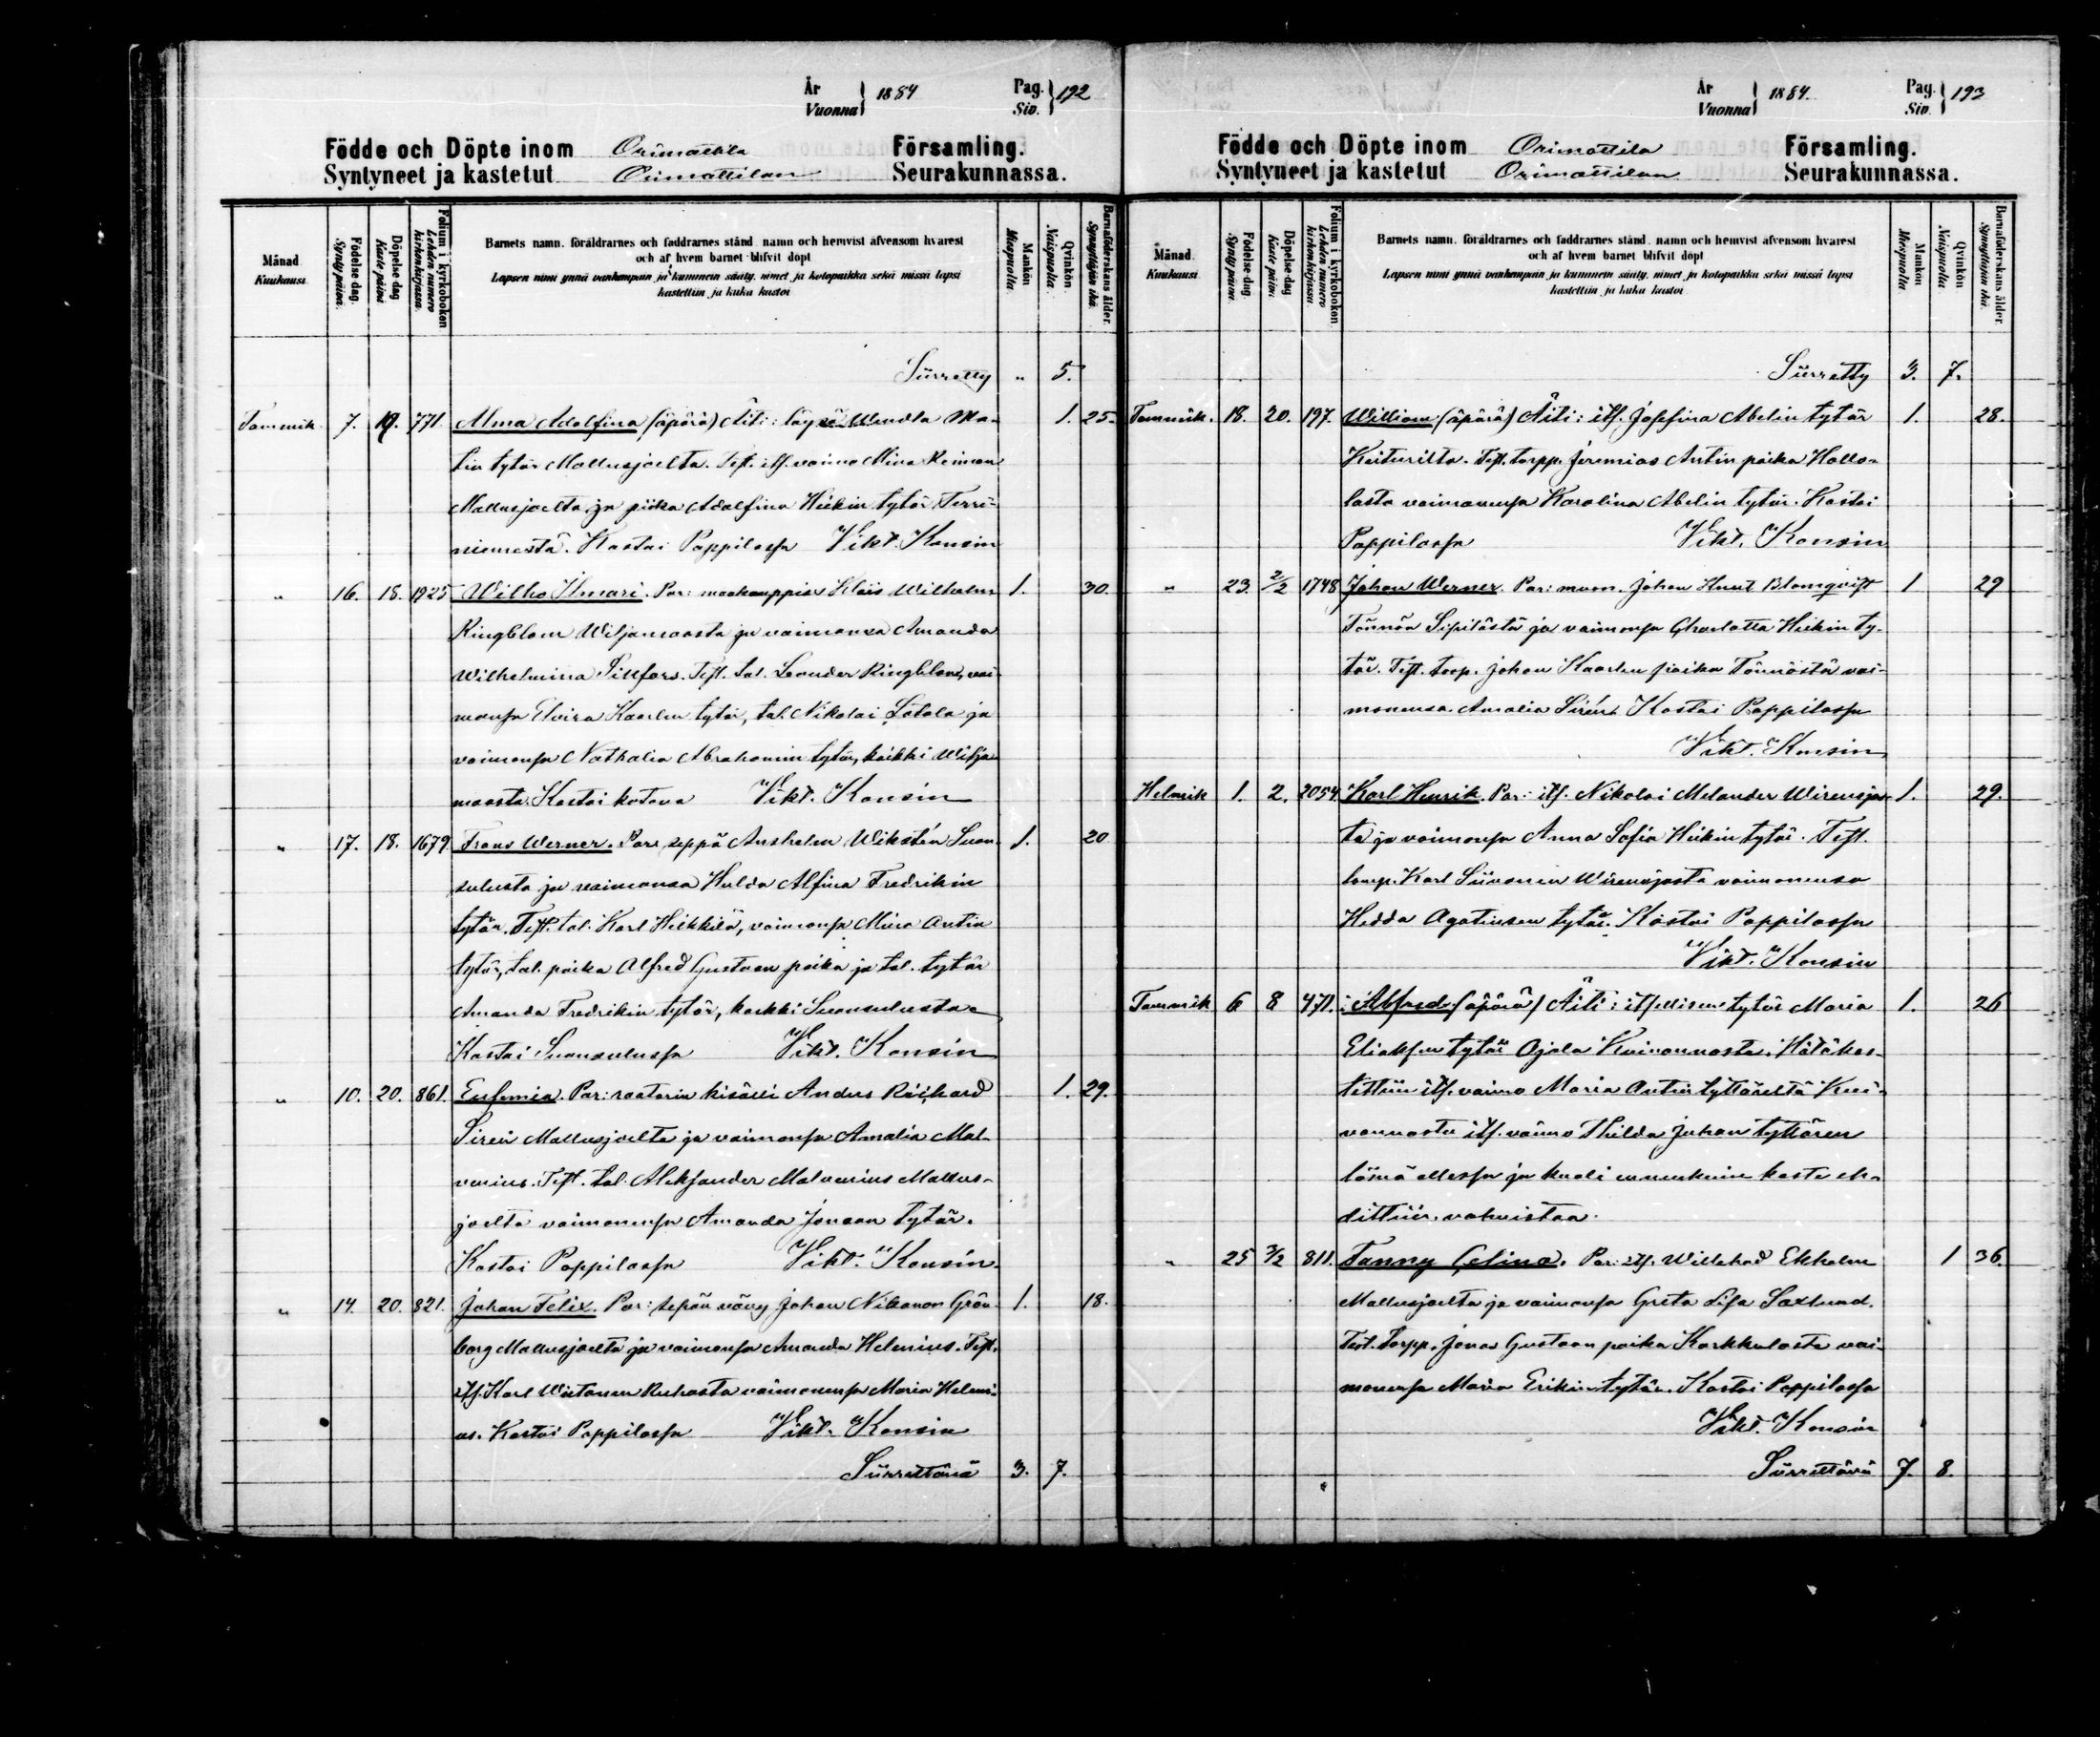 År
Vuonna } 1884 Pag.
Siv. } 192
Födde och Döpte inom Orimattila Församling.
Syntyneet ja kastetut Orimattilan Seurakunnassa.
Månad.
Kuukausi.
Födelse-dag.
Synty-päivä.
Döpelse-dag
Kaste-päivä.
Folium i kyrkoboken
Lehden numero
kirkonkirjassa.
Barnets namn, föräldrarnes och faddrarnes stånd, namn och hemvist äfvensom hvarest
och af hvem barnet blifvit döpt
Lapsen nimi ynnä vanhempain ja kummein sääty, nimet ja kotopaikka sekä missä lapsi
kastettiin ja kuka kastoi
Mankön
Miespuolia.
Qvinkön
Naispuolia.
Barnaföderskans ålder.
Synnyttäjän ikä.
Siirretty " 5.
Tammik. 7. 19. 771. Alma Adolfina (äpärä) Äiti: Wendla Ma- 1. 25.
tin tytär Mallusjoelta. Test. its. vaimo Mina Reiman
Mallusjoelta ja piika Adolfina Heikin tytär Terri-
niemestä. Kastoi Pappilassa Vikt. Konsin
" 16. 18. 1925 Wilho Ilmari. Par: maakauppias Wilhelm 1. 30.
Ringblom Wiljamaasta ja vaimonsa Amanda
Wilhelmina Sillfors. Test. tal. Leander Ringblom, vai-
monsa Elvira Kaarlen tytär, tal. Nikolai Lötola ja
vaimonsa Nathalia Abrahamin tytär, kaikki Wilja-
maasta. Kastoi kotona Vikt. Konsin
" 17. 18. 1679 Frans Werner. Par. seppä Anshelm Wikstén Suon- 1. 20
sulusta ja vaimonsa Hulda Alfina Fredrikin
tytär. Test. tal. Karl Heikkilä, vaimonsa Mina Antin
tytär, tal. poika Alfred Gustaan poika ja tal. tytär
Amanda Fredrikin tytär, kaikki
Kastoi Vikt. Konsin
" 10. 20. 861. Eufemia. Par: raatarin kisälli Anders Richard 1. 29.
Siren Mallusjoelta ja vaimonsa Amalia Mal-
venius. Test. tal. Aleksander Malvenius Mallus-
joelta vaimonensa Amanda Jonaan tytär.
Kastoi Pappilassa Vikt. Konsin.
" 14. 20. 821. Johan Felix. Par: sepän vävy Johan Nikanor Grön- 1. 18.
berg Mallusjoelta ja vaimonsa Amanda Helenius. Test.
its. Karl Wirtanen vaimonensa Maria Heleni-
us. Kastoi Pappilassa Vikt. Konsin
Siirrettävä 3. 7.
År
Vuonna } 1884. Pag.
Siv. } 193
Födde och Döpte inom Orimattila Församling.
Syntyneet ja kastetut Orimattilan Seurakunnassa.
Månad.
Kuukausi.
Födelse-dag.
Synty-päivä.
Döpelse-dag
Kaste-päivä.
Folium i kyrkoboken
Lehden numero
kirkonkirjassa.
Barnets namn, föräldrarnes och faddrarnes stånd, namn och hemvist äfvensom hvarest
och af hvem barnet blifvit döpt
Lapsen nimi ynnä vanhempain ja kummein sääty, nimet ja kotopaikka sekä missä lapsi
kastettiin ja kuka kastoi
Mankön
Miespuolia.
Qvinkön
Naispuolia.
Barnaföderskans ålder.
Synnyttäjän ikä.
Siirretty 3. 7.
Tammik. 18. 20. 197. William (äpärä) Äiti: its. Josefina Abelin tytär 1. 28.
Keiturilta. Test. torpp. Jeremias Antin poika Hollo-
lasta vaimonensa Karolina Abelin tytär. Kastoi
Pappilassa Vikt. Konsin
" 23. 2/2 1748 Johan Werner. Par: muon. Johan Knut Blomqvist 1 29
Tönnön Sipilästä ja vaimonsa Charlotta Heikin ty-
tär. Test. torp. Johan Kaarlen poika Tönnöstä vai-
monensa Amalia Sirén. Kastoi Pappilassa
Vikt. Konsin
Helmik 1. 2. 2054 Karl Henrik. Par: its. Nikolai Melander Wirenojas- 1. 29.
ta ja vaimonsa Anna Sofia Heikin tytär. Test.
Karl Siivonen Wirenojasta vaimonensa
Hedda Agatusen tytär. Kastoi Pappilassa
Vikt. Konsin
Tammik 6 8 471. Alfred (äpärä) Äiti: itsellisen tytär Maria 1. 26
Eliaksen tytär Ojala Kuivannosta. Hätäkas-
tettiin its. vaimo Maria Antin tyttäreltä Kui-
vannosta its. vaimo Thilda Juhan tyttären
läsnä ollessa ja kuoli ennenkuin kaste eh-
dittiin vahvistaa.
" 25 3/2 811. Fanny Celina. Par: its. Willehad Ekholm 1 36.
Mallusjoelta ja vaimonsa Greta Lisa Saxlund.
Test. torpp. Jonas Gustaan poika Karkkulasta vai-
monensa Maria Erikin tytär. Kastoi Pappilassa
Vikt. Konsin
Siirrettävä 7. 8.